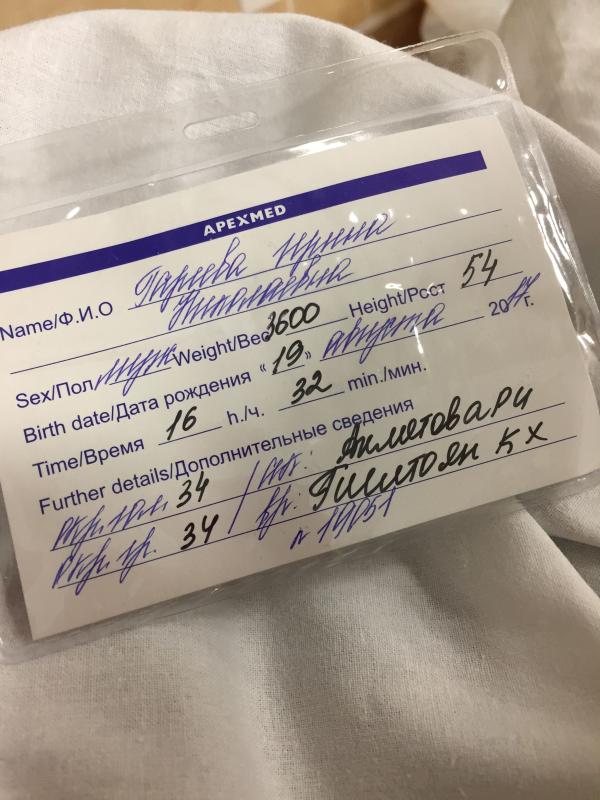 APEXMED
Name/Ф.И.О Гареева Ирина
Николаевна
Sex/Пол муж Weight/Вес 3600 Height/Рост 54
Birth date/Дата рождения «19» августа 2017г.
Time/Время 16 h./ч. 32 min./мин.
Further details/Дополнительные сведения
окр. гол. 34 / ак.:
окр. гр. 34 / вр.: КХ
19051